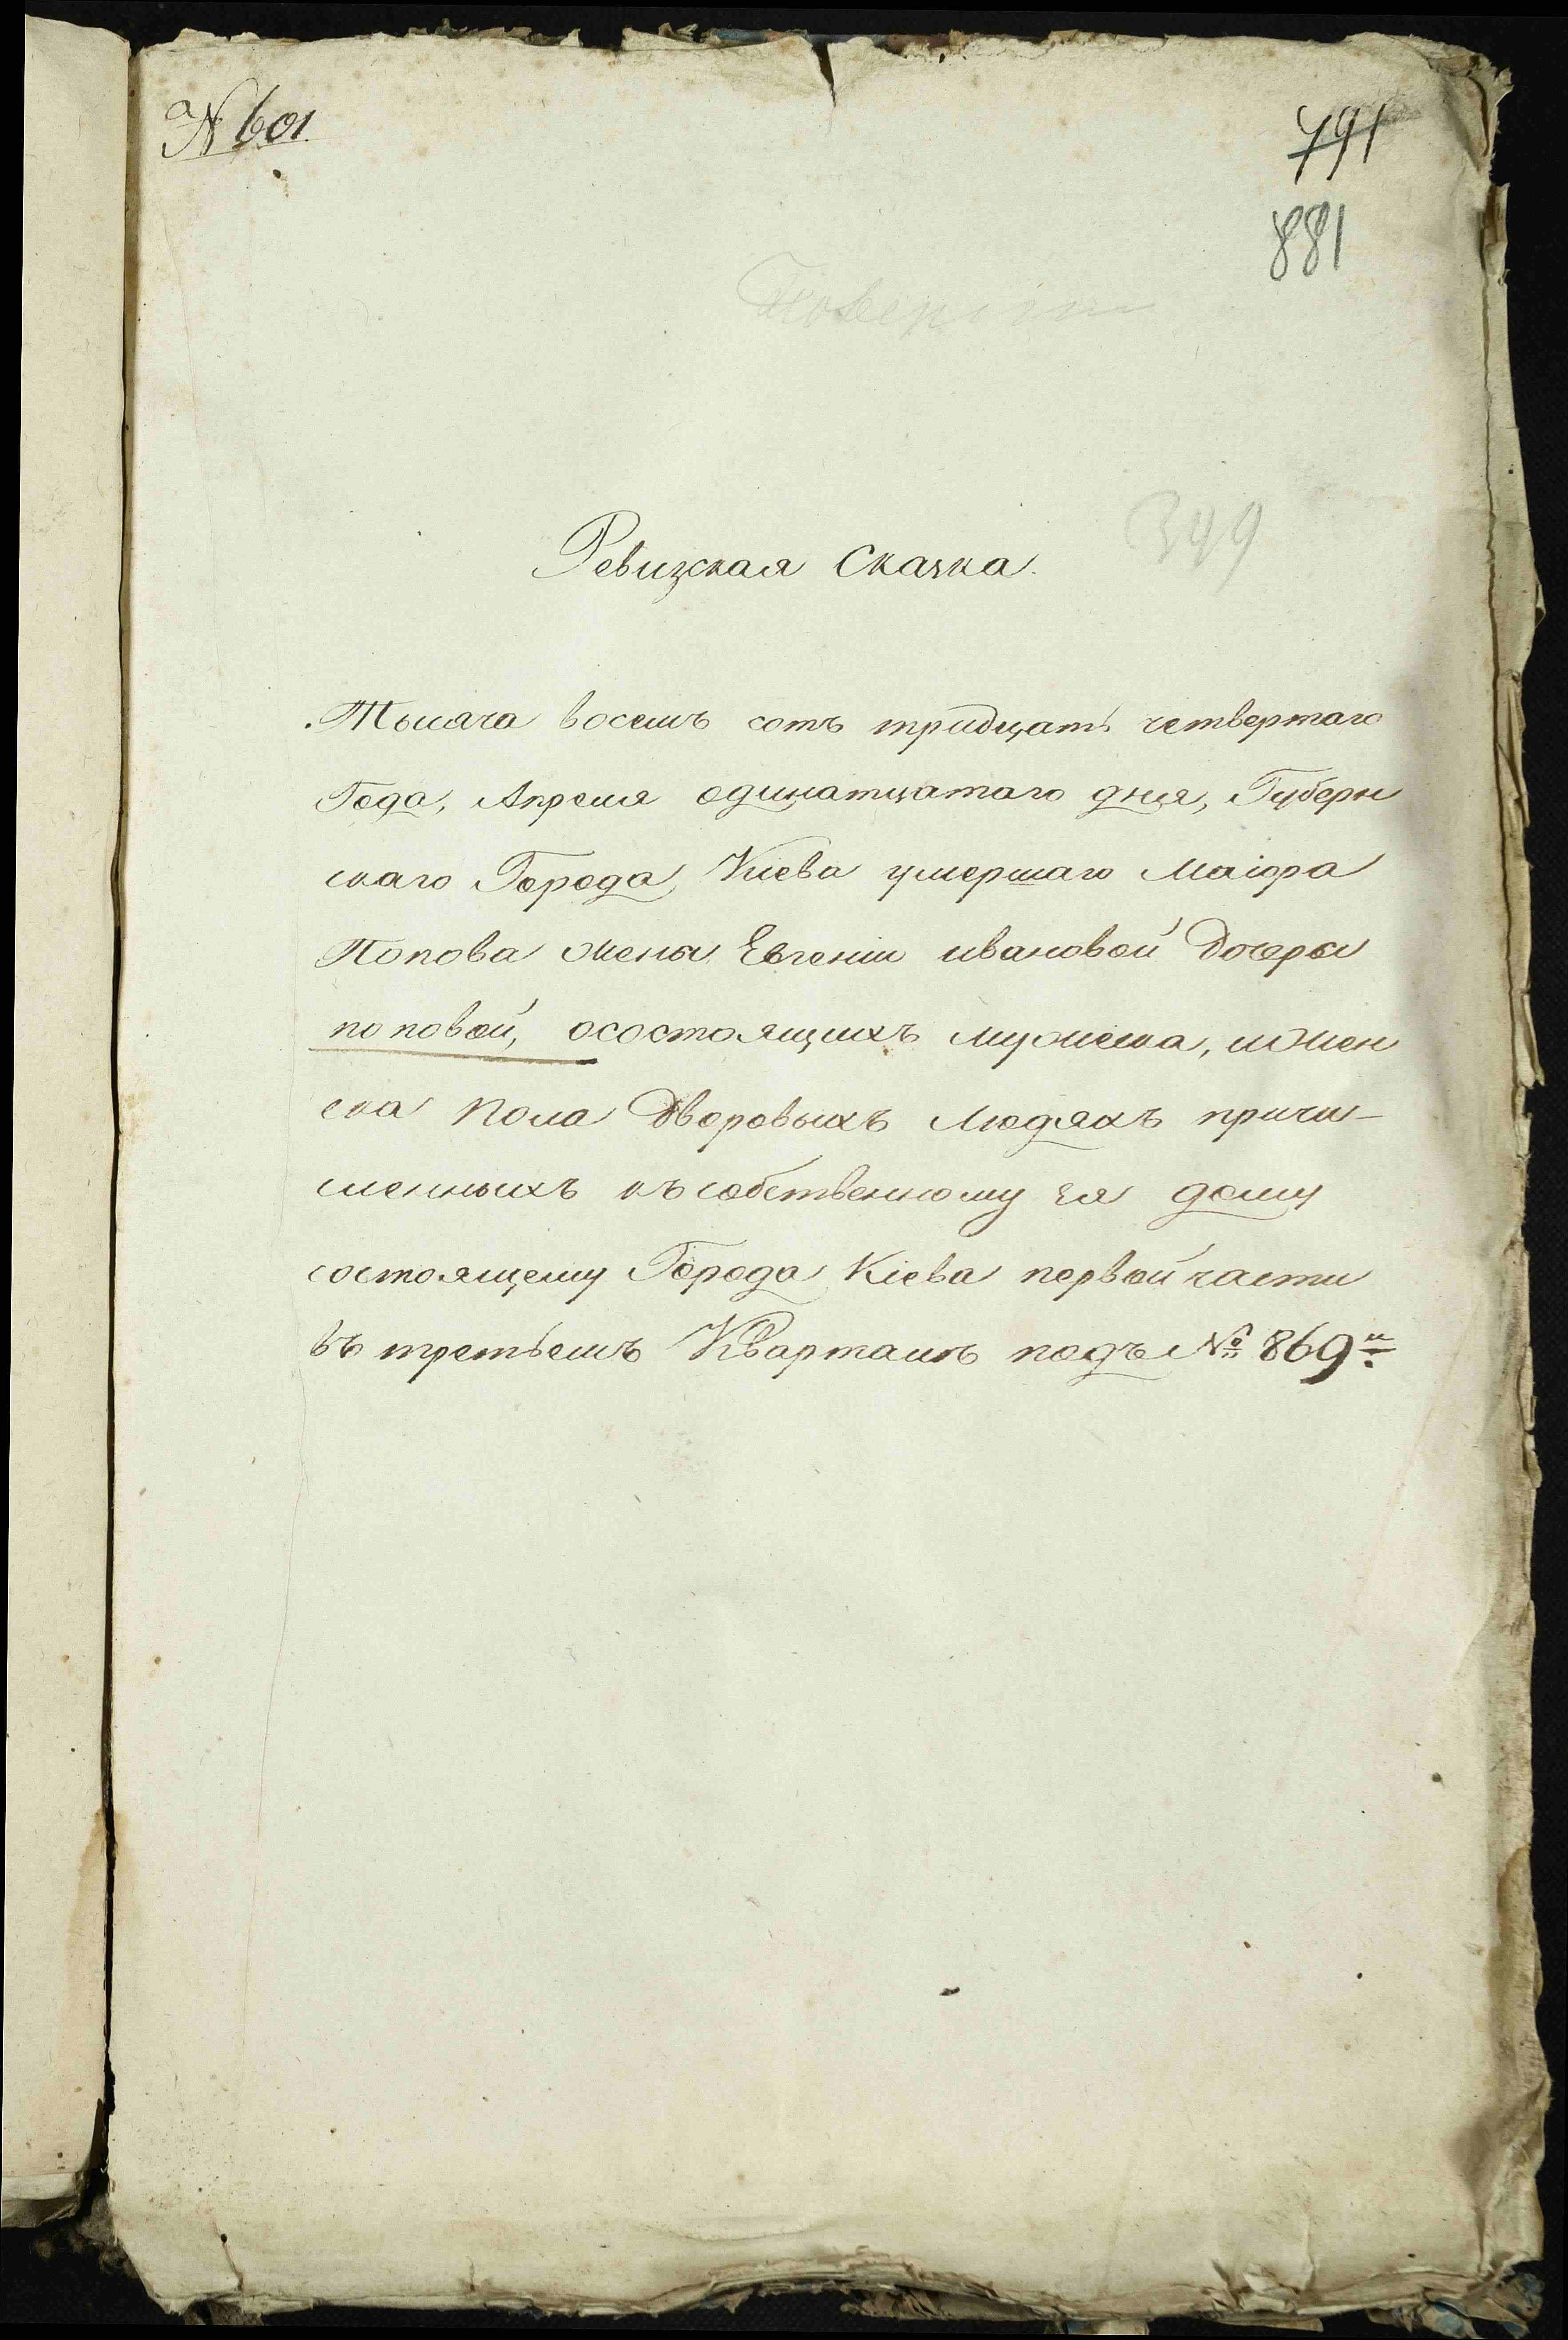 № 601
791
881
399
Ревизская Сказка.
Тысяча восемъ сотъ тридцать четвертаго
Года, Апреля одинатцатаго дня, Губерн
скаго Города Киева умершаго Маіора
Попова жены Евгении ивановой Дочеры
поповой, осостоящихъ мужеска, ижен
ска пола Дворовыхъ Людяхъ причи-
сленныхъ къ собственному ея дому
состоящему Города Кіева первой части
въ третьемъ Кварталѣ подъ № 869 м